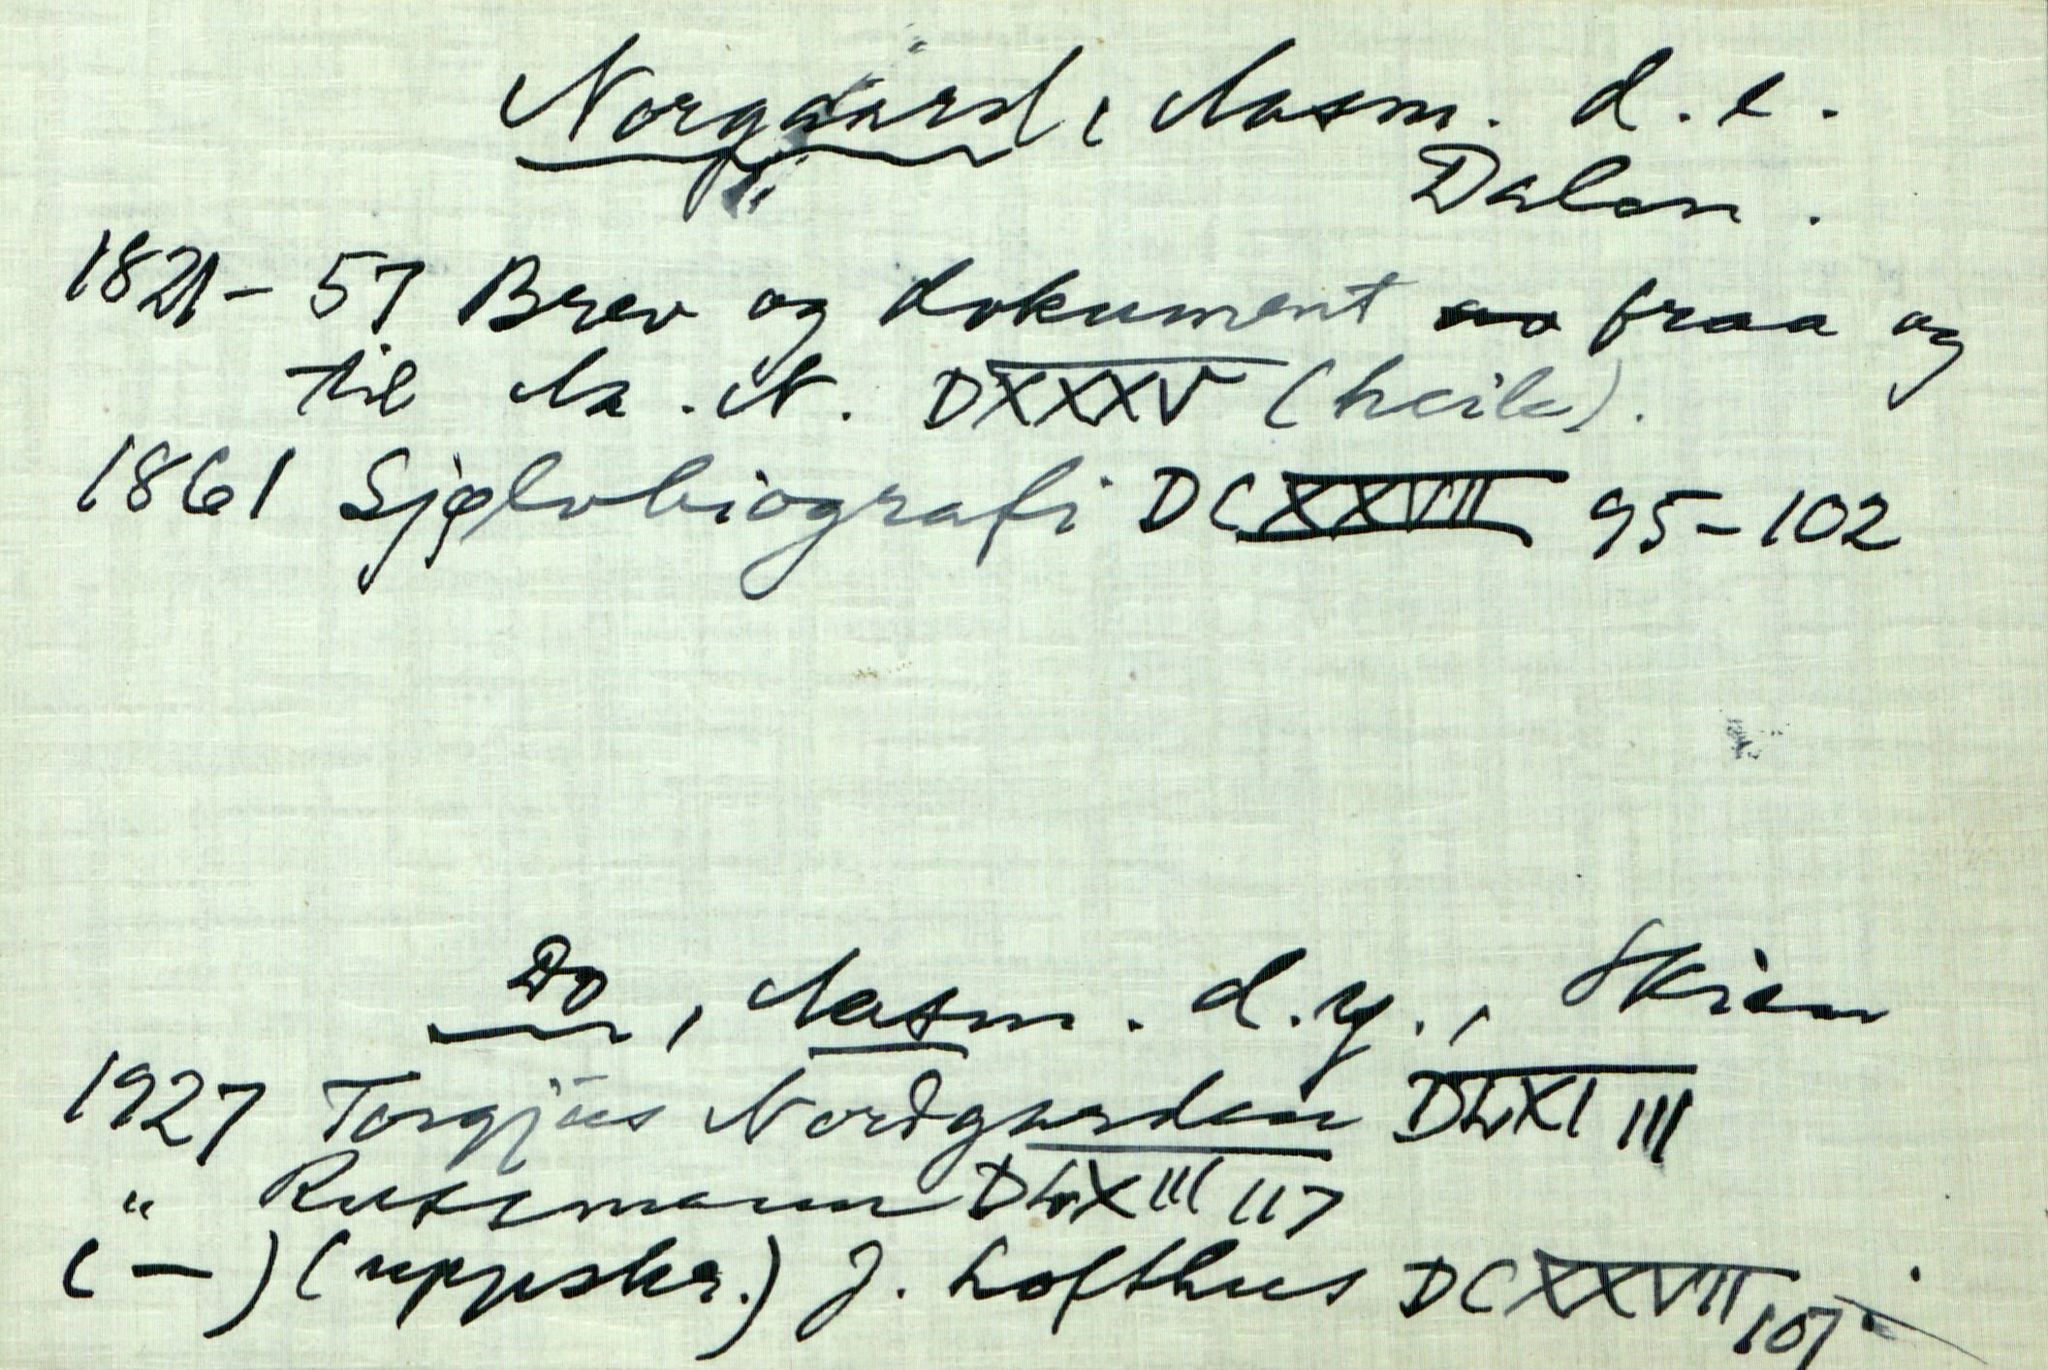 Norgaard, Aasm. d. e.
Dalen.
1821-57 Brev og dokument fraa og
til Aa. N. DXXXV (heile).
1861 Sjølvbiografi DCXXVIII 95-102
Do, Aasm. d.y., Skien
1927 Torgjus Nordgarden DLXI III
" Russemann DLXIII 117
(-) (uppskr.) J. Lofthus DCXXVII 107